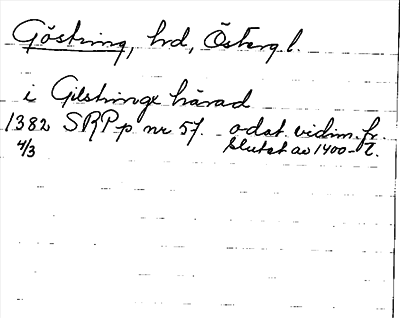 Göstring, hrd, Österg l.
i Gilstringe härad
1382 SRP p nr 57. odat. vidim. fr.
4/3 slutet av 1400-t.